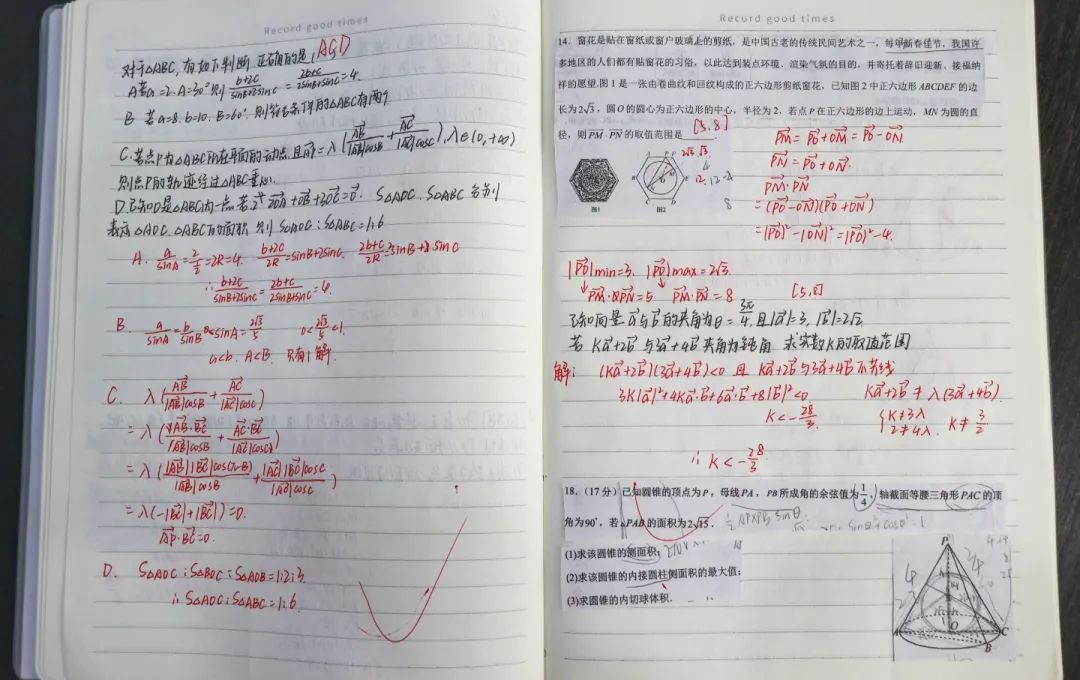 对于△ABC,有如下判断,正确的是 AGD
A若a=2.A=30°则 b+2c/sinB+2sinC = 2b+c/2sinB+sinC = 4.
B 若a=8.b=10.B=60°.则符合条件的△ABC有两个
C.若点P为△ABC所在平面的动点.且AP=λ(AB/|AB|cosB + AC/|AC|cosC),λ∈(0,+∞)
则点P的轨迹经过△ABC重心.
D.已知O是△ABC内一点.若2OA+OB+3OC=0. S△AOC、S△ABC分别
表示△AOC、△ABC的面积,则S△AOC:S△ABC=1:6
A. a/sinA = 2/½ =2R=4. b+2c/2R=sinB+2sinC. 2b+c/2R=2sinB+sinC
∴ b+2c/sinB+2sinC = 2b+c/2sinB+sinC = 4.
B. a/sinA = b/sinB sinA= 2√3/5 0<2√3/5<1.
a<b. A<B. 只有1解.
C. λ(AB/|AB|cosB + AC/|AC|cosC)
=λ(AB·BC/|AB|cosB + AC·BC/|AC|cosC)
=λ(|AB||BC|cos(π-B)/|AB|cosB + |AC||BC|cosC/|AC|cosC)
=λ(-|BC|+|BC|)=0.
AP·BC=0.
D. S△AOC:S△BOC:S△AOB=1:2:3
∴S△AOC:S△ABC=1:6.
Record good times
14. 窗花是贴在窗纸或窗户玻璃上的剪纸,是中国古老的传统民间艺术之一,每年新春佳节,我国许
多地区的人们都有贴窗花的习俗,以此达到装点环境、渲染气氛的目的,并寄托着辞旧迎新、接福纳
祥的愿望.图1是一张由卷曲纹和回纹构成的正六边形剪纸窗花,已知图2中正六边形ABCDEF的边
长为2√3,圆O的圆心为正六边形的中心,半径为2,若点P在正六边形的边上运动,MN为圆的直
径,则PM·PN的取值范围是 [5,8]
图1 图2
PM=PO+OM=PO-ON
PN=PO+ON
PM·PN
=(PO-ON)(PO+ON)
=|PO|²-|ON|²=|PO|²-4.
|PO|min=3. |PO|max=2√3.
PM·PN=5 PM·PN=8 [5,8]
已知向量a与b的夹角为θ=3π/4,且|a|=3,|b|=2√2
若Ka+2b与3a+4b夹角为钝角 求实数K的取值范围
解: (Ka+2b)(3a+4b)<0 且 Ka+2b与3a+4b不共线
3K|a|²+4Ka·b+6a·b+8|b|²<0 Ka+2b≠λ(3a+4b).
K<-28/3. {K≠3λ 2≠4λ. K≠3/2
∴K<-28/3
18.(17分)已知圆锥的顶点为P,母线PA,PB所成角的余弦值为1/4,轴截面等腰三角形PAC的顶
角为90°,若△PAB的面积为2√15.
(1)求该圆锥的侧面积;
(2)求该圆锥的内接圆柱侧面积的最大值;
(3)求圆锥的内切球体积.
P
A O C
B